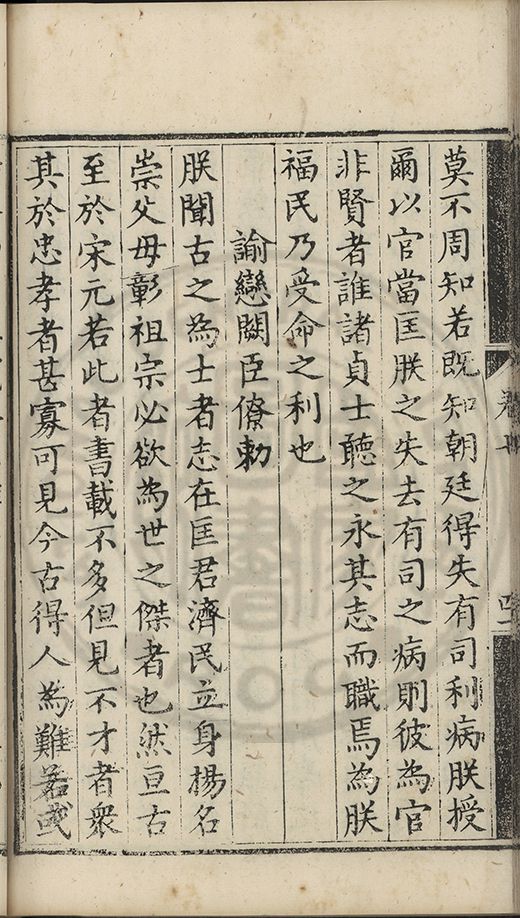 莫不周知若既知朝廷得失有司利病朕授
爾以官當匡朕之失去有司之病則彼為官
非賢者誰諸貞士聽之永其志而職焉為朕
福民乃受命之利也
諭戀闕臣僚勅
朕聞古之為士者志在匡君濟民立身揚名
崇父母彰祖宗必欲為世之傑者也然亘古
至於宋元若此者書載不多但見不才者衆
其於忠孝者甚寡可見今古得人為難若或
卷七